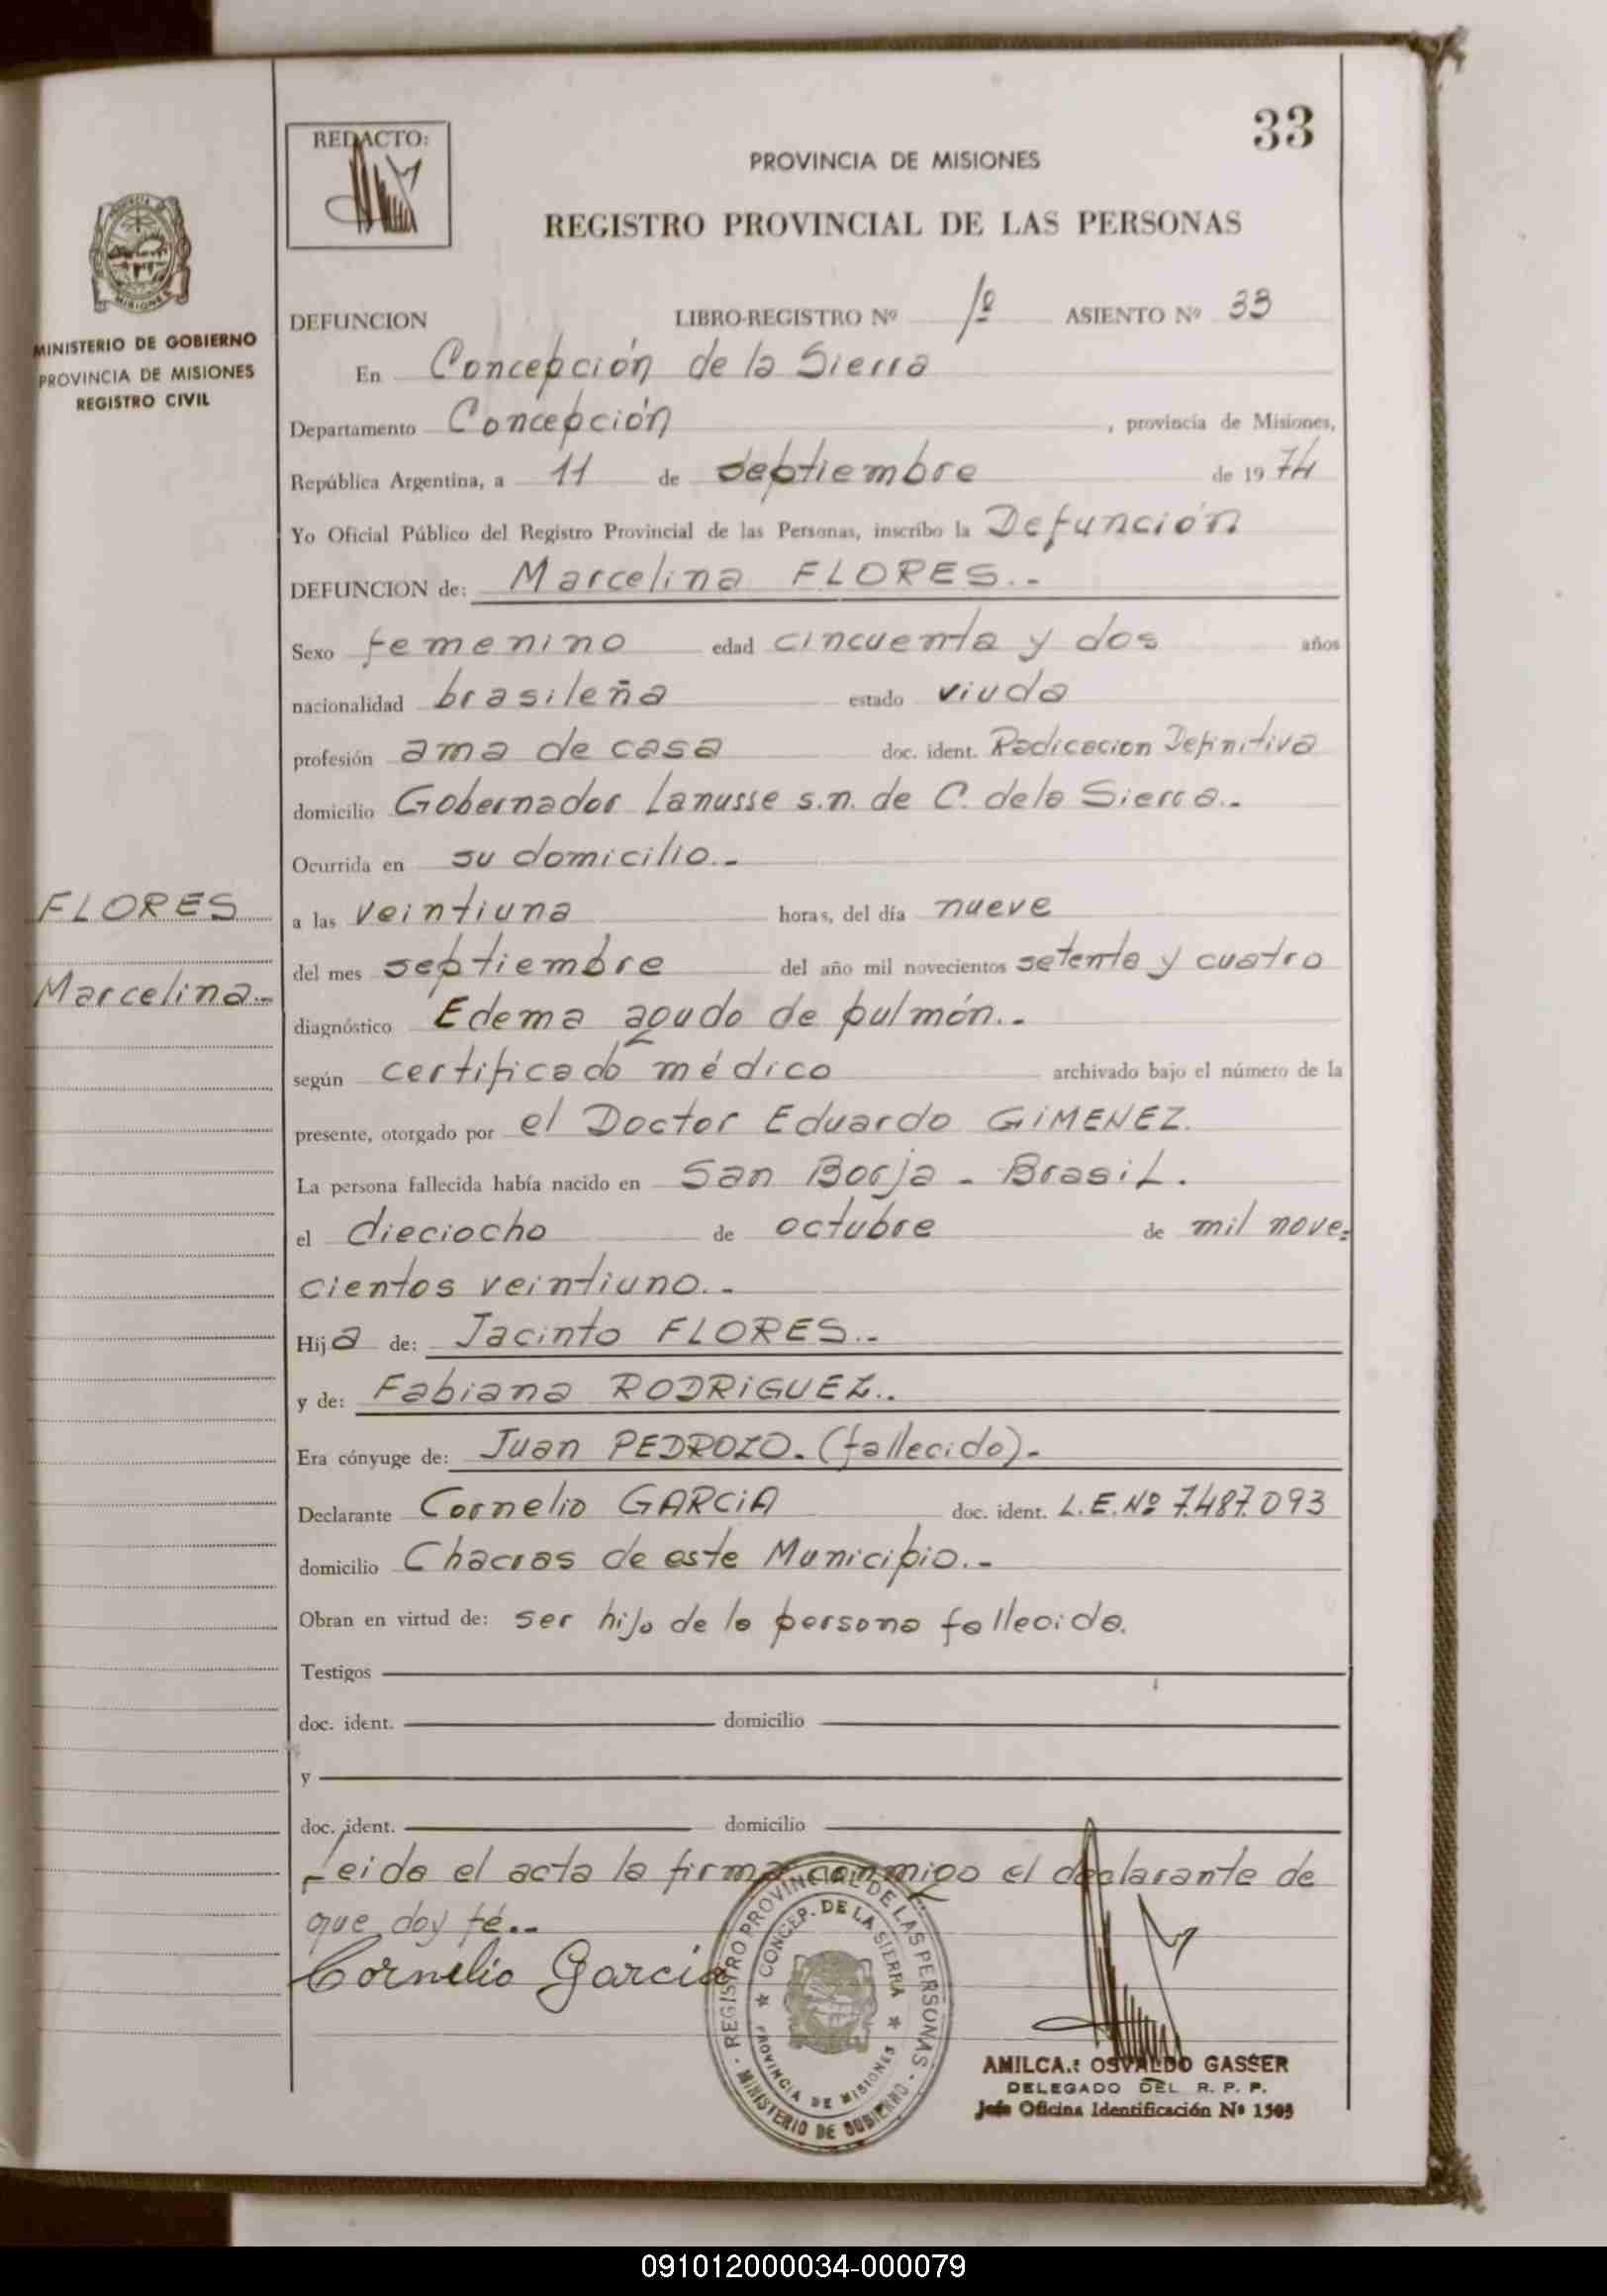 33
REDACTO:
PROVINCIA DE MISIONES
REGISTRO PROVINCIAL DE LAS PERSONAS
MINISTERIO DE GOBIERNO
PROVINCIA DE MISIONES
REGISTRO CIVIL
DEFUNCION LIBRO-REGISTRO Nº 1º ASIENTO Nº 33
En Concepción de la Sierra
Departamento Concepción, provincia de Misiones,
República Argentina, a 11 de septiembre de 1974
Yo Oficial Público del Registro Provincial de las Personas, inscribo la Defunción
DEFUNCION de: Marcelina FLORES.-
Sexo femenino edad cincuenta y dos años
nacionalidad brasileña estado viuda
profesión ama de casa doc. ident. Radicacion Definitiva
domicilio Gobernador Lanusse s.n. de C. de la Sierra.-
Ocurrida en su domicilio.-
FLORES
Marcelina.-
a las veintiuna horas, del día nueve
del mes septiembre del año mil novecientos setenta y cuatro
diagnóstico Edema agudo de pulmón.-
según certificado médico archivado bajo el número de la
presente, otorgado por el Doctor Eduardo GiMENEZ.
La persona fallecida había nacido en San Borja - BrasiL.
el dieciocho de octubre de mil nove=
cientos veintiuno.-
Hija de: Jacinto FLORES.-
y de: Fabiana RODRiGUEZ..
Era cónyuge de: Juan PEDROZO.(fallecido).-
Declarante Cornelio GARCiA doc. ident. L.E.Nº 7.487.093
domicilio Chacras de este Municipio.-
Obran en virtud de: ser hijo de la persona fallecida.
Testigos
doc. ident. domicilio
y
doc. ident. domicilio
Leida el acta la firma conmigo el declarante de
que doy fé.-
Cornelio Garcia
REGISTRO PROVINCIAL DE LAS PERSONAS - MINISTERIO DE GOBIERNO -
CONCEP. DE LA SIERRA
PROVINCIA DE MISIONES
AMILCA.: OSVALDO GASSER
DELEGADO DEL R. P. P.
Jefe Oficina Identificación Nº 1505
091012000034-000079